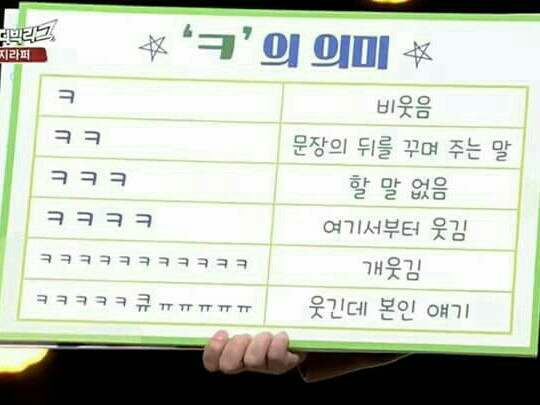 빅리그
지라퍼
☆ 'ㅋ'의 의미 ☆
ㅋ 비웃음
ㅋㅋ 문장의 뒤를 꾸며 주는 말
ㅋㅋㅋ 할 말 없음
ㅋㅋㅋㅋ 여기서부터 웃김
ㅋㅋㅋㅋㅋㅋㅋㅋㅋㅋㅋ 개웃김
ㅋㅋㅋㅋㅋ큐ㅠㅠㅠㅠㅠ 웃긴데 본인 얘기